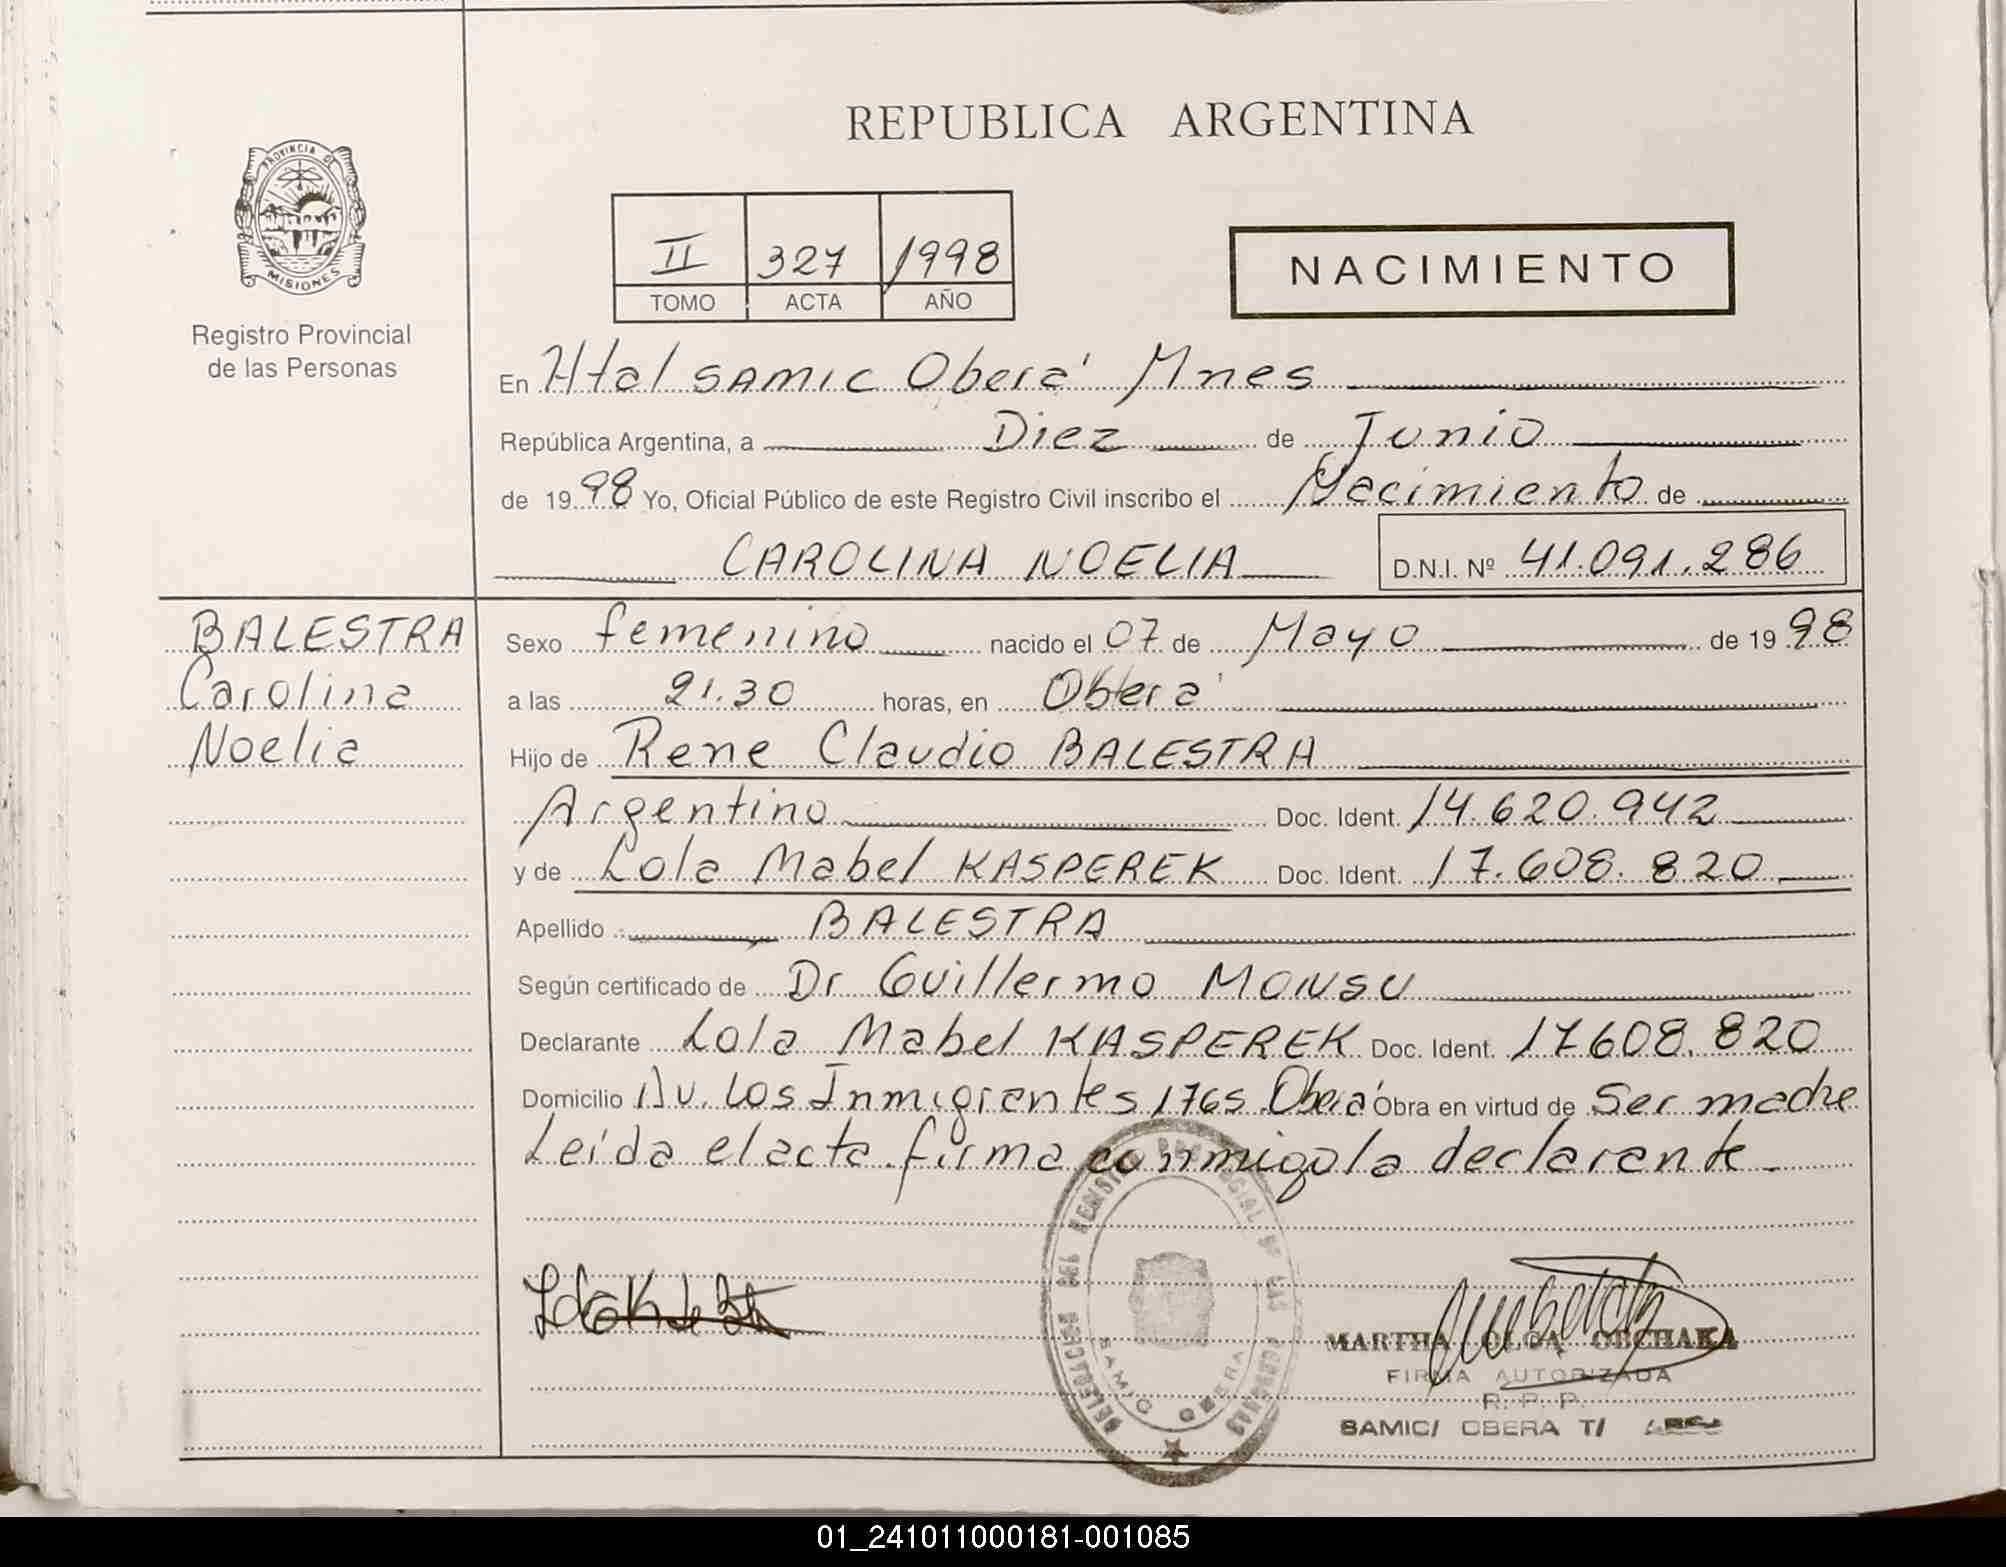 REPUBLICA ARGENTINA
PROVINCIA DE
MISIONES
Registro Provincial
de las Personas
II 327 1998
TOMO ACTA AÑO
NACIMIENTO
En Htal SAMIC Oberá Mnes
República Argentina, a Diez de Junio
de 1998 Yo, Oficial Público de este Registro Civil inscribo el Nacimiento de
CAROLINA NOELIA D.N.I. Nº 41.091.286
BALESTRA
Carolina
Noelia
Sexo femenino nacido el 07 de Mayo de 1998
a las 21.30 horas, en Oberá
Hijo de Rene Claudio BALESTRA
Argentino Doc. Ident. 14.620.942
y de Lola Mabel KASPEREK Doc. Ident. 17.608.820
Apellido BALESTRA
Según certificado de Dr Guillermo MONSU
Declarante Lola Mabel KASPEREK Doc. Ident. 17608.820
Domicilio Av. Los Inmigrantes 1765 Oberá Obra en virtud de Ser madre
Leída el acta firma conmigo la declarante
DELEGACION DEL REGISTRO PROVINCIAL DE LAS PERSONAS
SAMIC OBERA
MARTHA OLGA OBCHAKA
FIRMA AUTORIZADA
R. P. P.
SAMIC/ OBERA T/
01_241011000181-001085